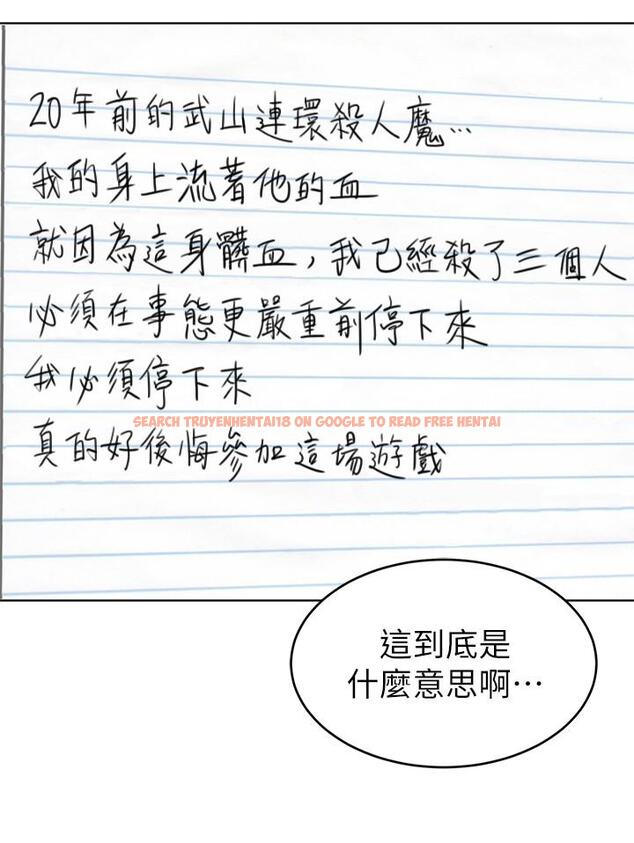 20年前的武山連環殺人魔…
我的身上流著他的血
就因為這身髒血，我已經殺了三個人
必須在事態更嚴重前停下來
我必須停下來
SEARCH TRUYENHENTAI18 ON GOOGLE TO READ FREE HENTAI
真的好後悔參加這場遊戲
這到底是
什麼意思啊…